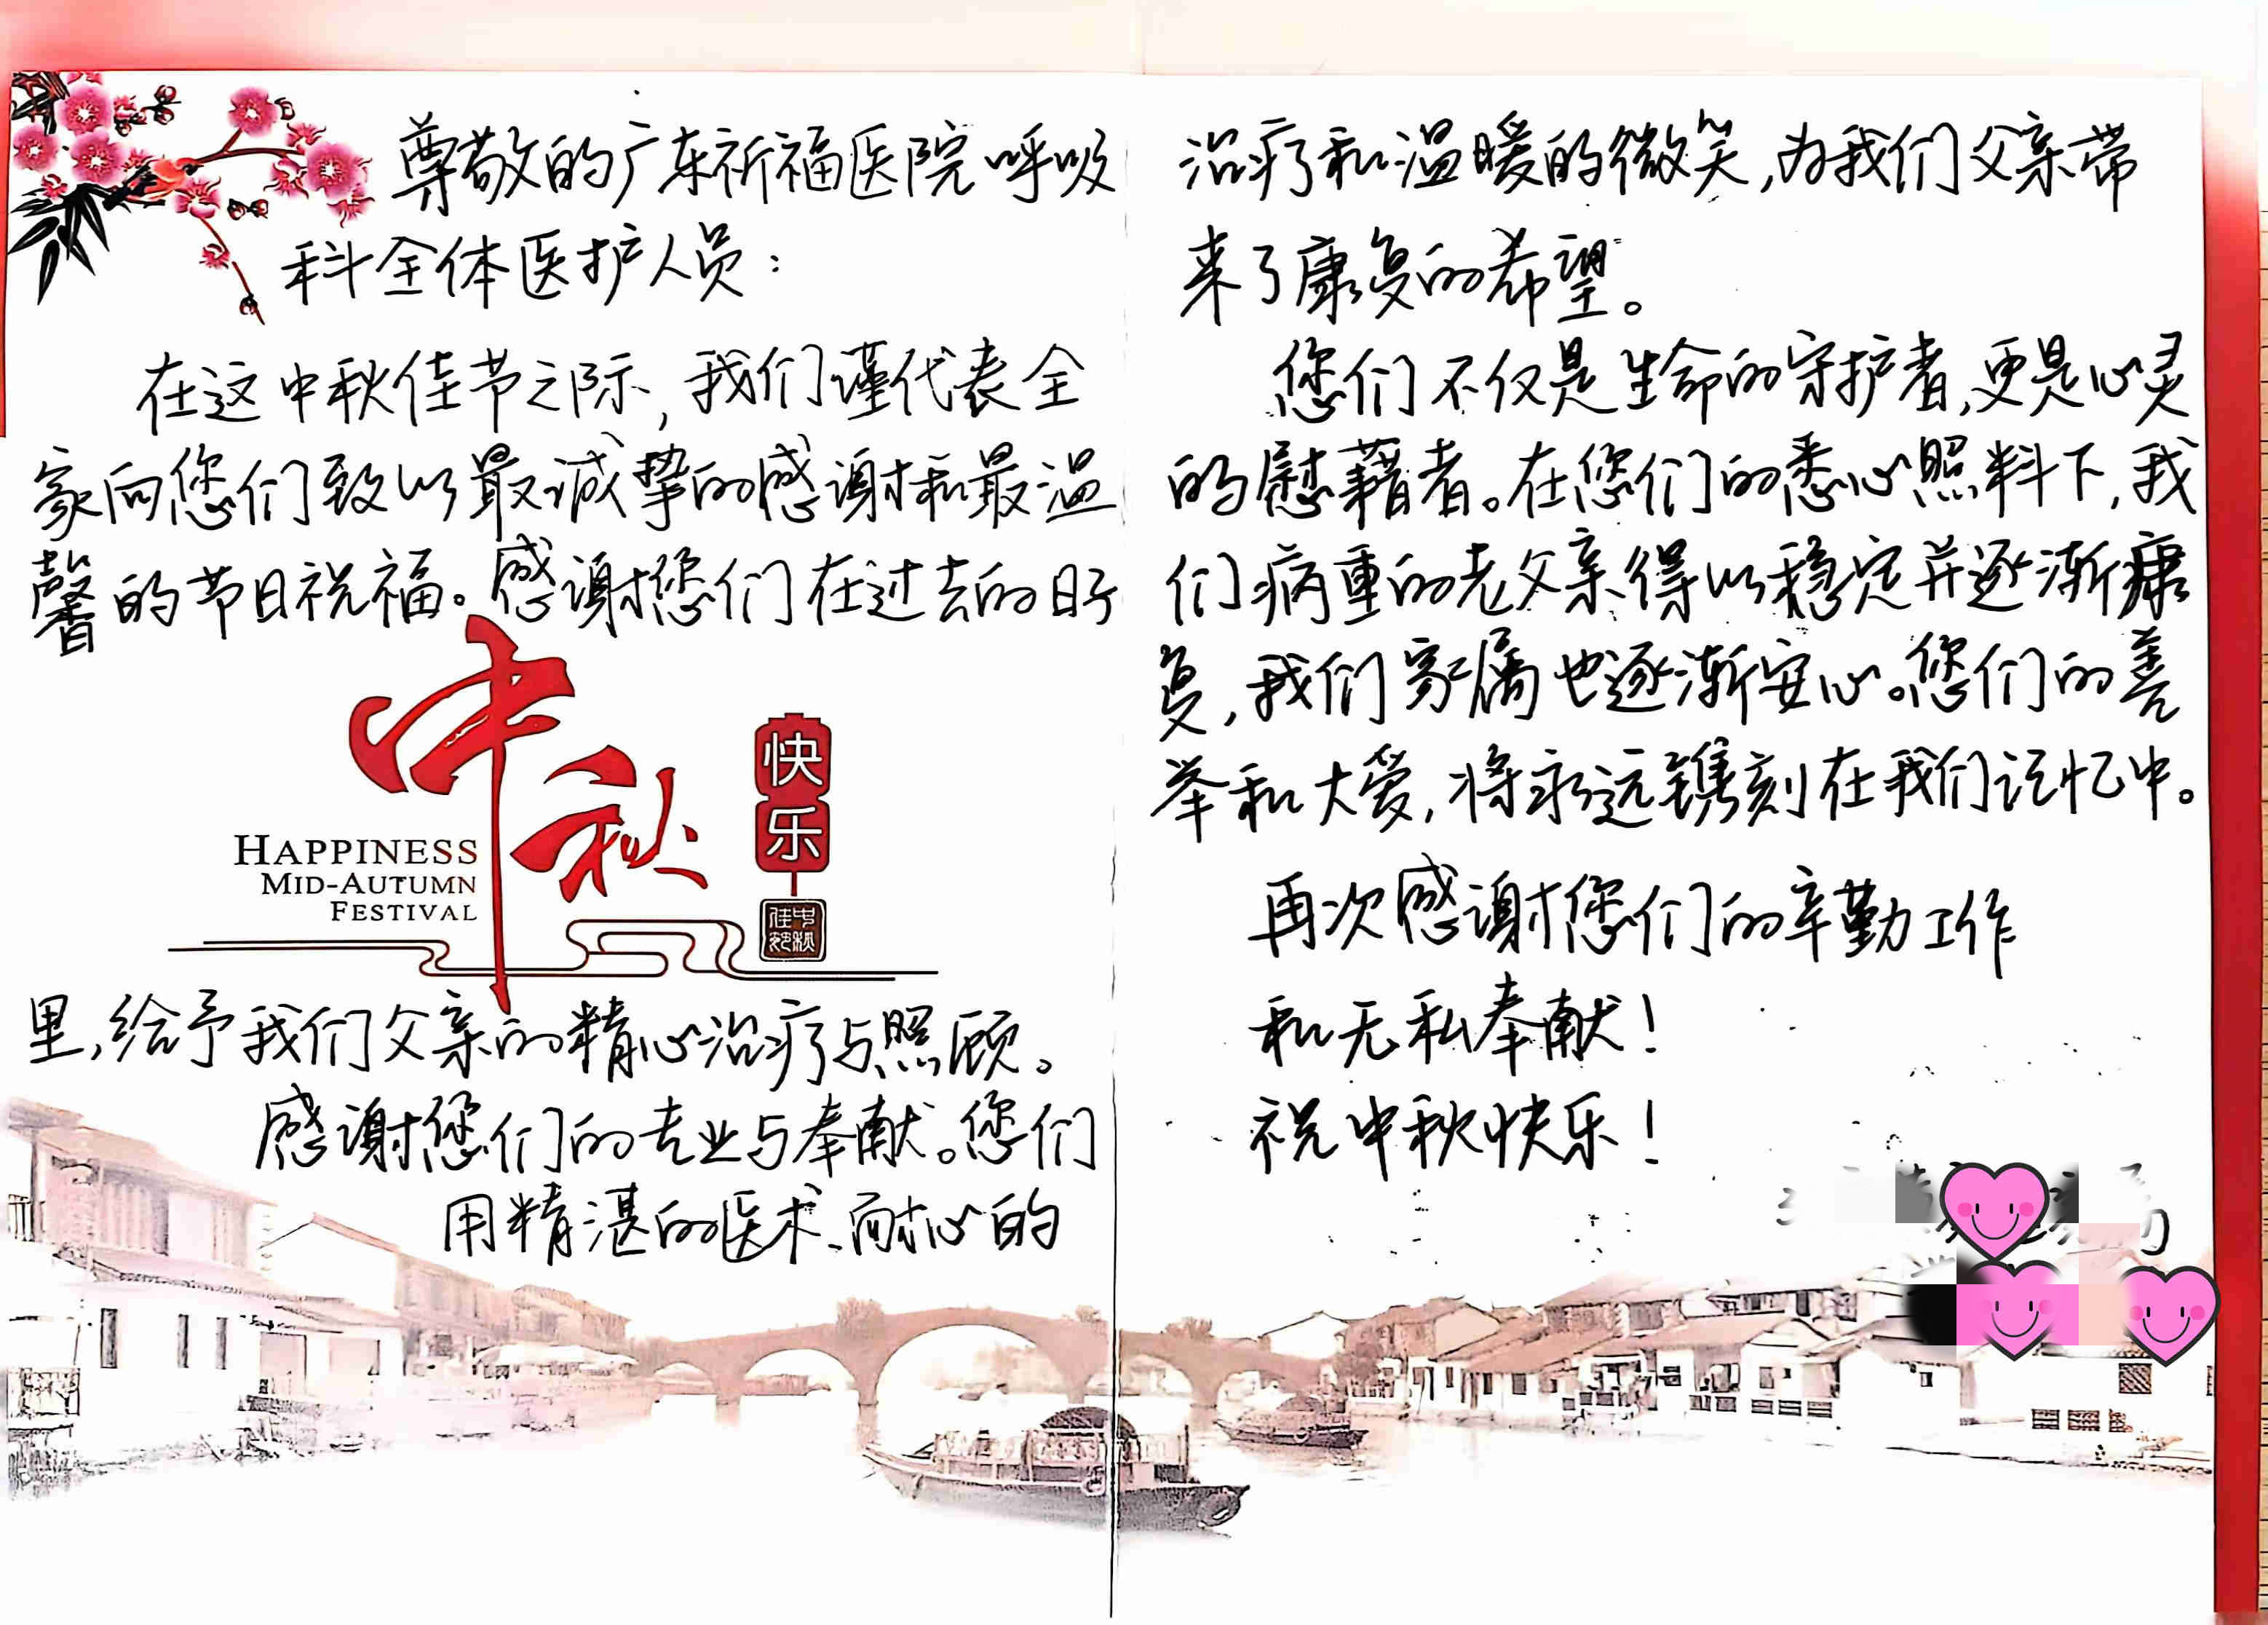 尊敬的广东祈福医院呼吸
科全体医护人员：
在这中秋佳节之际，我们谨代表全
家向您们致以最诚挚的感谢和最温
馨的节日祝福。感谢您们在过去的日子
中秋
快乐
HAPPINESS
MID-AUTUMN
FESTIVAL
中秋佳节
里，给予我们父亲的精心治疗与照顾。
感谢您们的专业与奉献。您们
用精湛的医术、耐心的
治疗和温暖的微笑，为我们父亲带
来了康复的希望。
您们不仅是生命的守护者，更是心灵
的慰藉者。在您们的悉心照料下，我
们病重的老父亲得以稳定并逐渐康
复，我们家属也逐渐安心。您们的善
举和大爱，将永远镌刻在我们记忆中。
再次感谢您们的辛勤工作
和无私奉献！
祝中秋快乐！